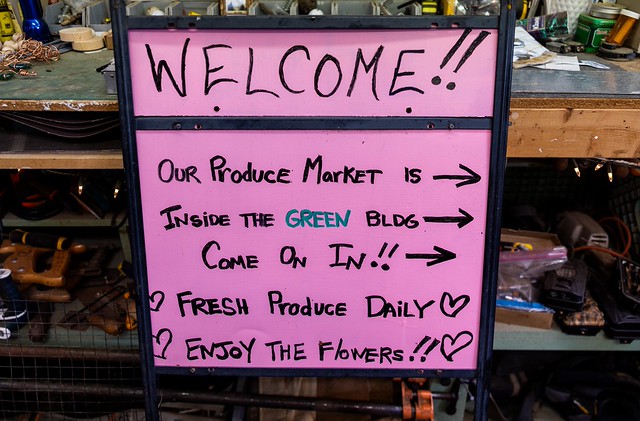 WELCOME!!
OUR PRODUCE MARKET IS →
INSIDE THE GREEN BLDG →
COME ON IN!! →
♡ FRESH PRODUCE DAILY ♡
♡ ENJOY THE FLOWERS!! ♡